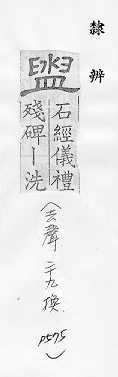 隸辨
盥
石經儀禮
殘碑丨洗
（去聲二十九換 P575）